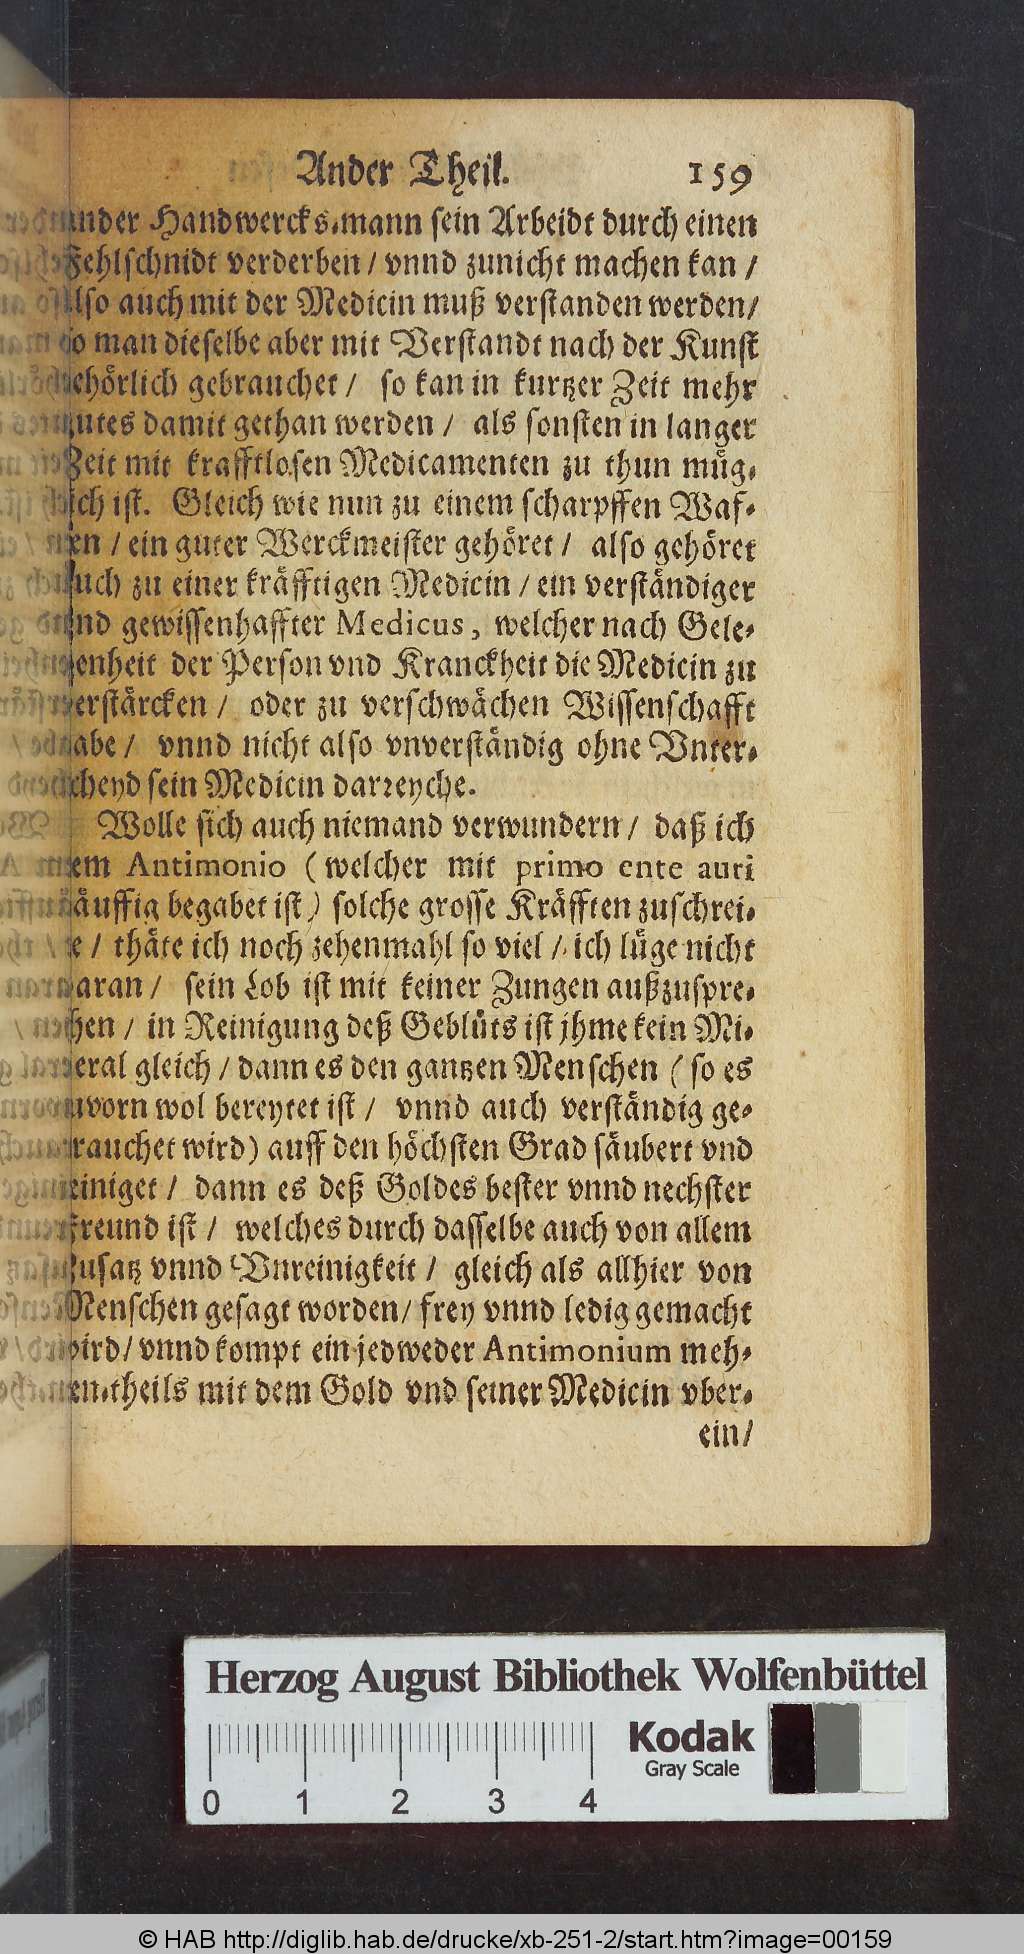 Ander Theil. 159
ander Handwercks⸗mann sein Arbeidt durch einen
Fehlschnidt verderben / vnnd zunicht machen kan /
Also auch mit der Medicin muß verstanden werden/
so man dieselbe aber mit Verstandt nach der Kunst
gehörlich gebrauchet / so kan in kurtzer Zeit mehr
gutes damit gethan werden / als sonsten in langer
Zeit mit krafftlosen Medicamenten zu thun müg⸗
lich ist. Gleich wie nun zu einem scharpffen Waf⸗
fen / ein guter Werckmeister gehöret / also gehöret
auch zu einer kräfftigen Medicin / ein verständiger
vnd gewissenhaffter Medicus, welcher nach Gele⸗
genheit der Person vnd Kranckheit die Medicin zu
verstärcken / oder zu verschwächen Wissenschafft
habe / vnnd nicht also vnverständig ohne Vnter⸗
scheyd sein Medicin darreyche.
Wolle sich auch niemand verwundern / daß ich
dem Antimonio (welcher mit primo ente auri
häuffig begabet ist) solche grosse Kräfften zuschrei⸗
be / thäte ich noch zehenmahl so viel / ich lüge nicht
daran / sein Lob ist mit keiner Zungen außzuspre⸗
chen / in Reinigung deß Geblüts ist jhme kein Mi⸗
neral gleich / dann es den gantzen Menschen (so es
zuvorn wol bereytet ist / vnnd auch verständig ge⸗
brauchet wird) auff den höchsten Grad säubert vnd
reiniget / dann es deß Goldes bester vnnd nechster
Freund ist / welches durch dasselbe auch von allem
Zusatz vnnd Vnreinigkeit / gleich als allhier von
Menschen gesagt worden/ frey vnnd ledig gemacht
wird/ vnnd kompt ein jedweder Antimonium meh⸗
ren⸗theils mit dem Gold vnd seiner Medicin vber⸗
ein/
Herzog August Bibliothek Wolfenbüttel
Kodak
Gray Scale
0 1 2 3 4
© HAB http://diglib.hab.de/drucke/xb-251-2/start.htm?image=00159